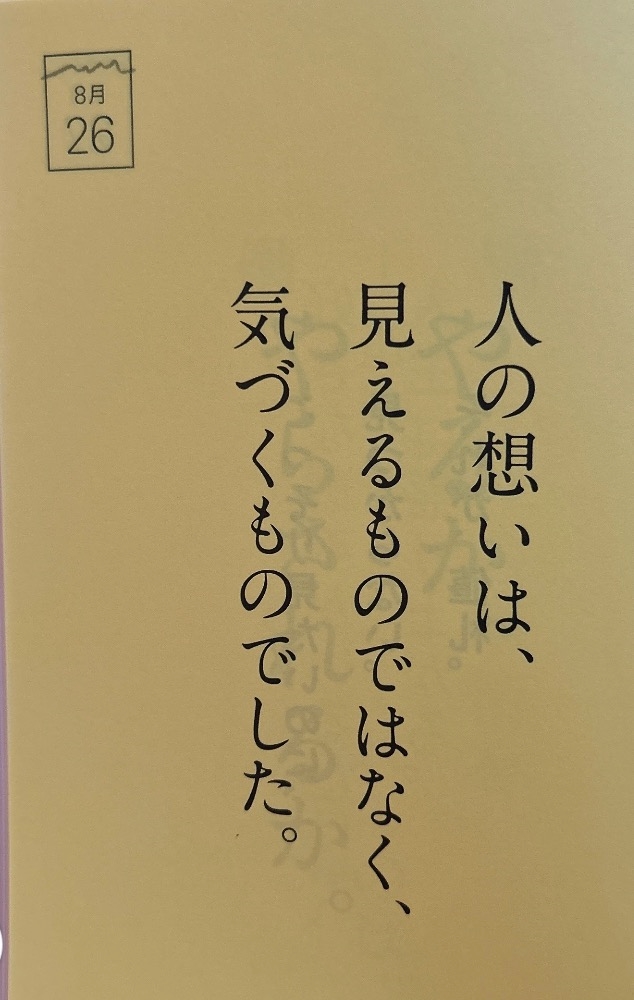 8月
26
人の想いは、
見えるものではなく、
気づくものでした。